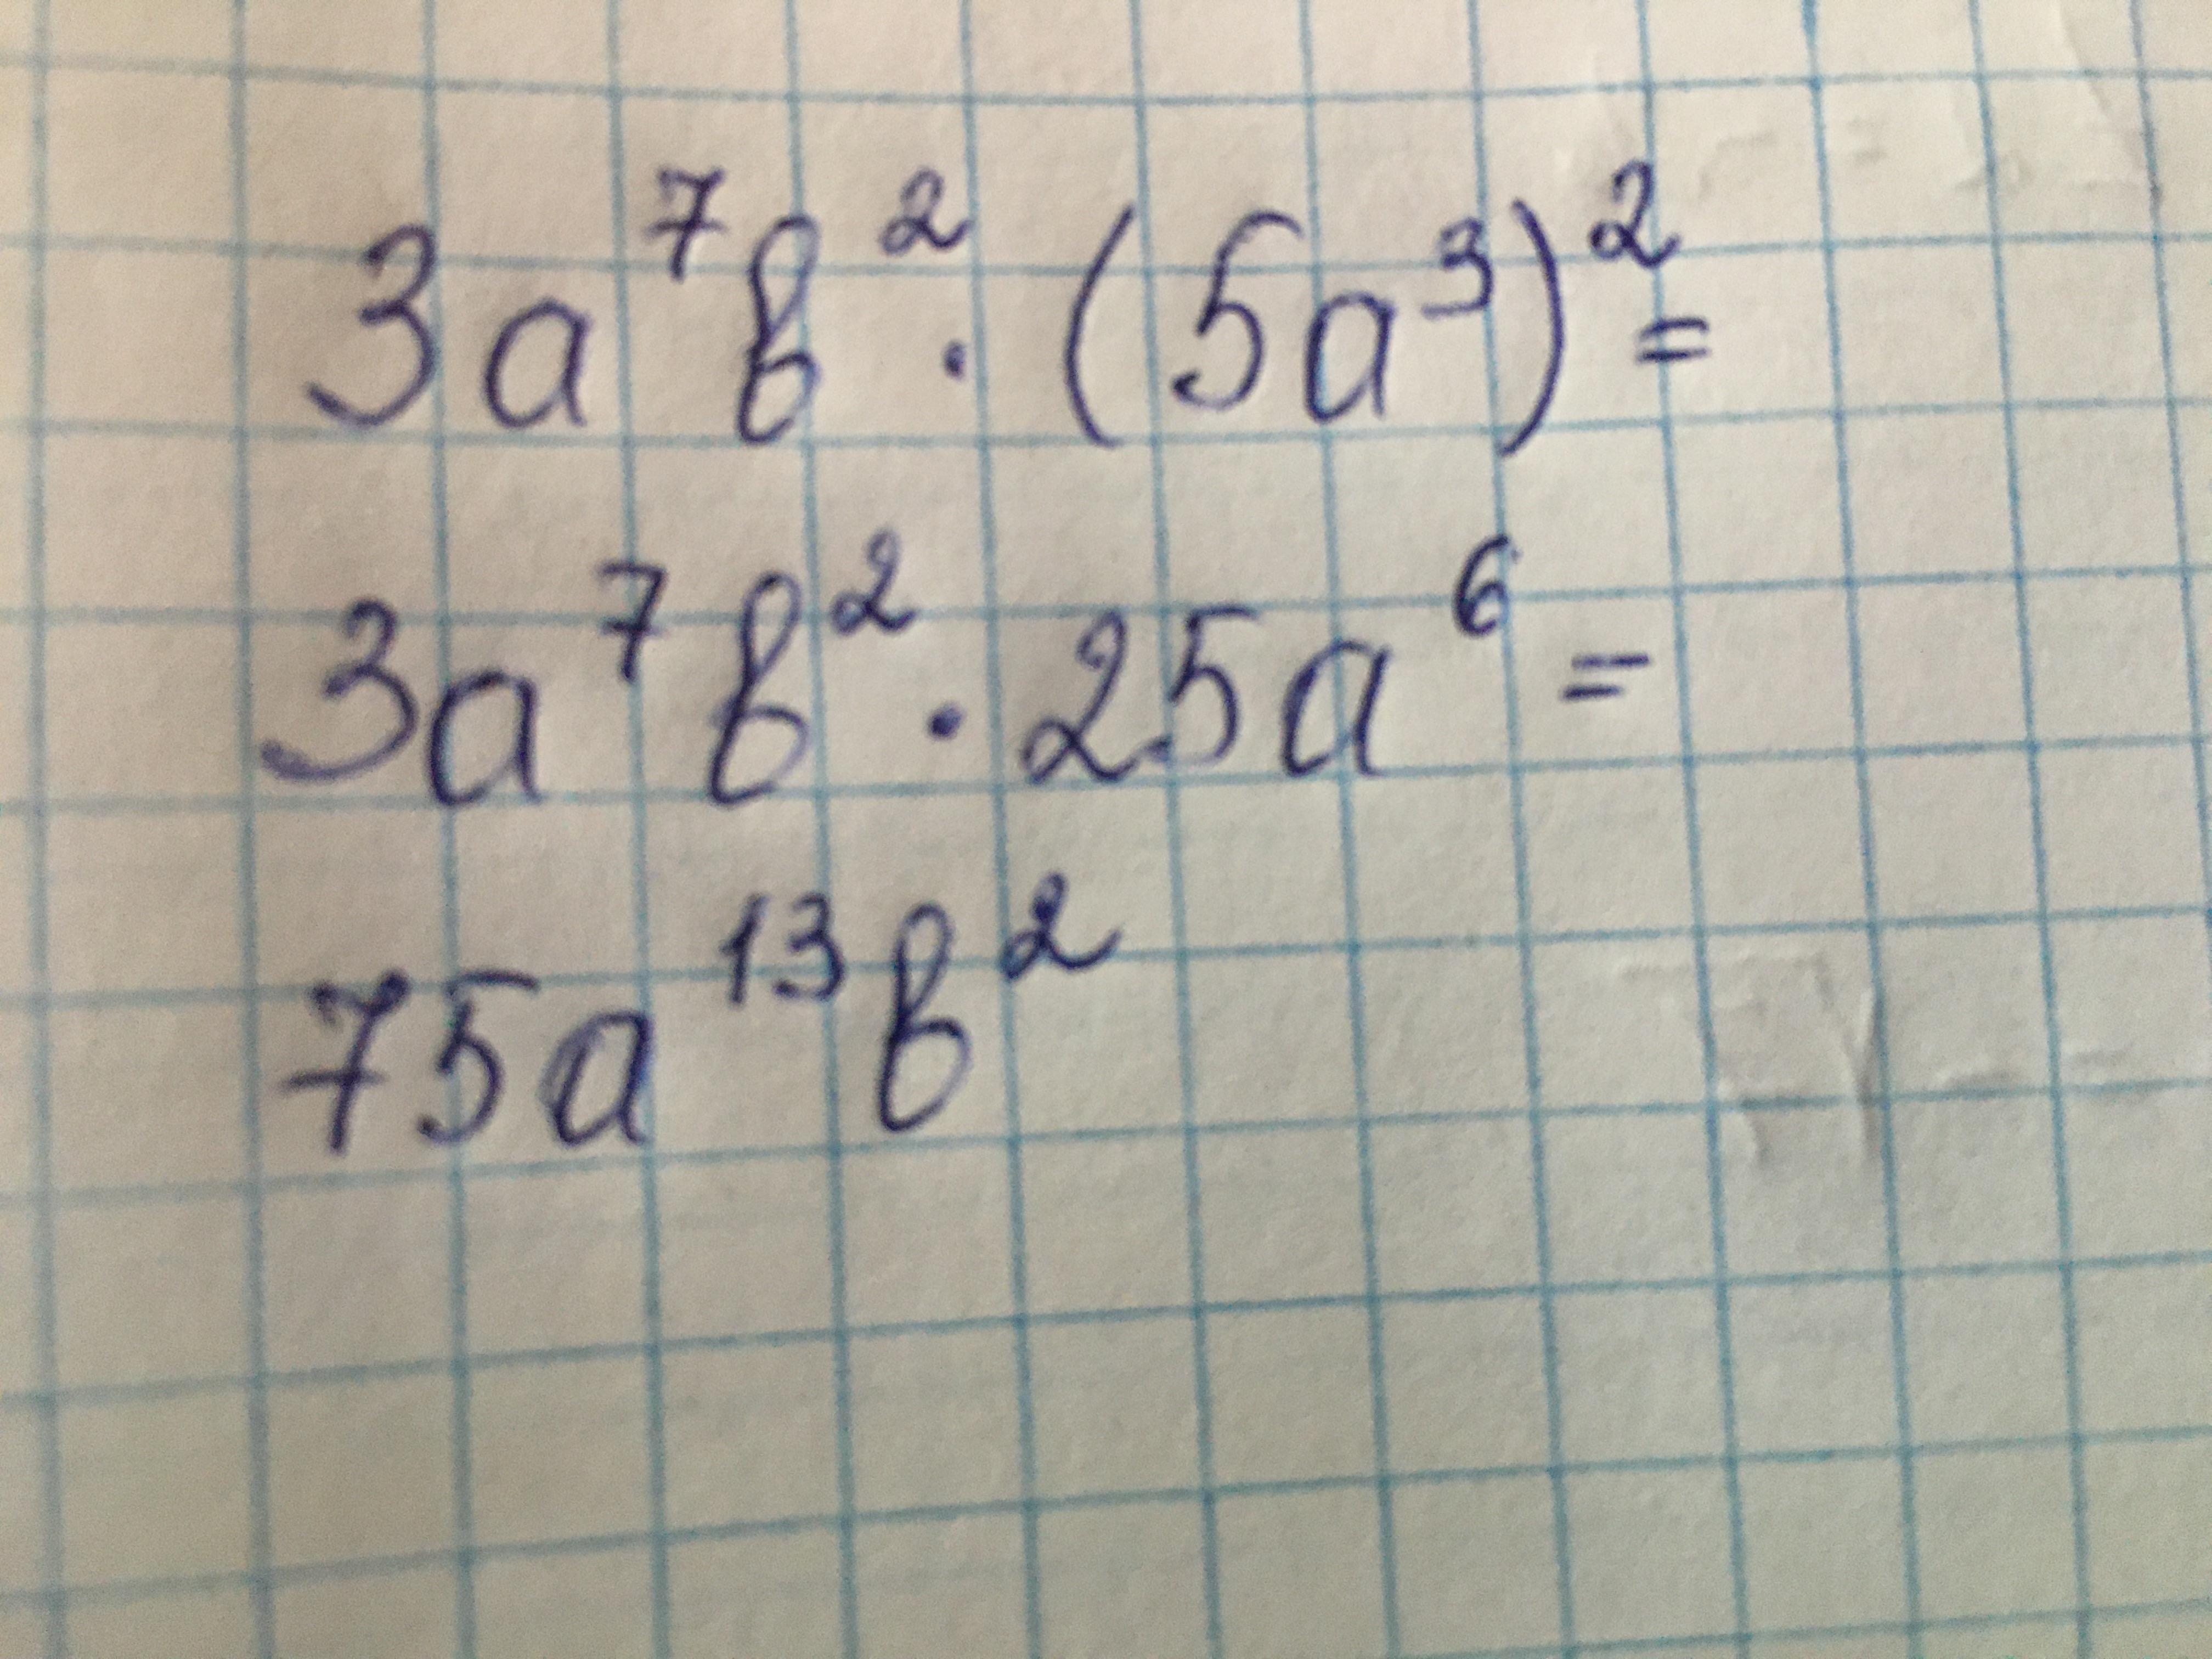 3a⁷b² · (5a³)² =
3a⁷b² · 25a⁶ =
75a¹³b²